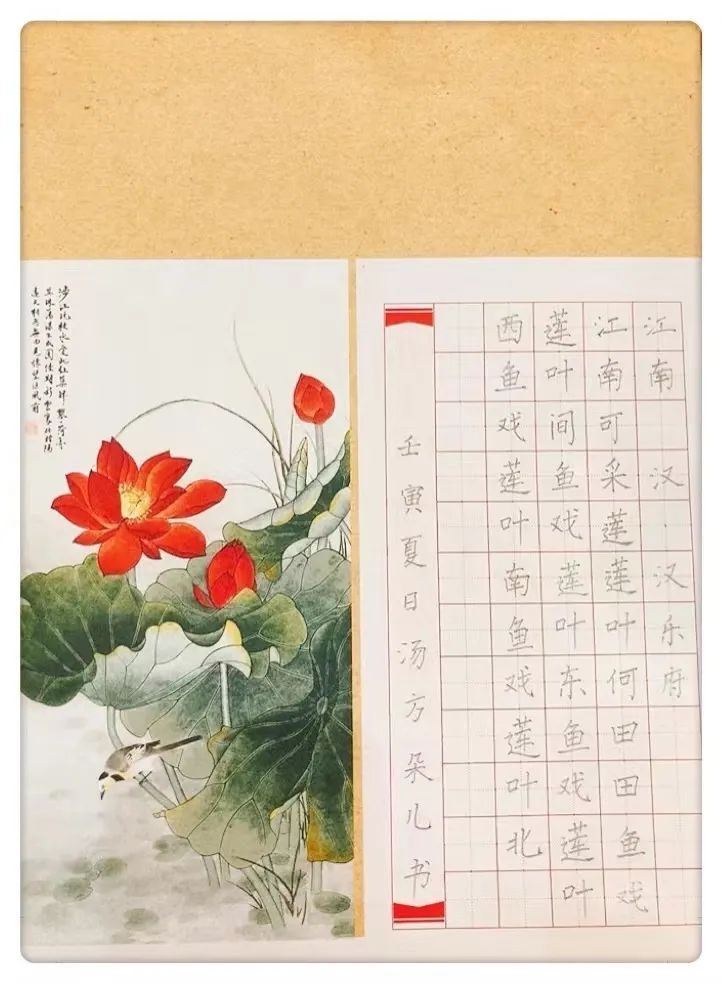 江南 汉·汉乐府
江南可采莲莲叶何田田鱼戏
莲叶间鱼戏莲叶东鱼戏莲叶
西鱼戏莲叶南鱼戏莲叶北
壬寅夏日汤方朵儿书